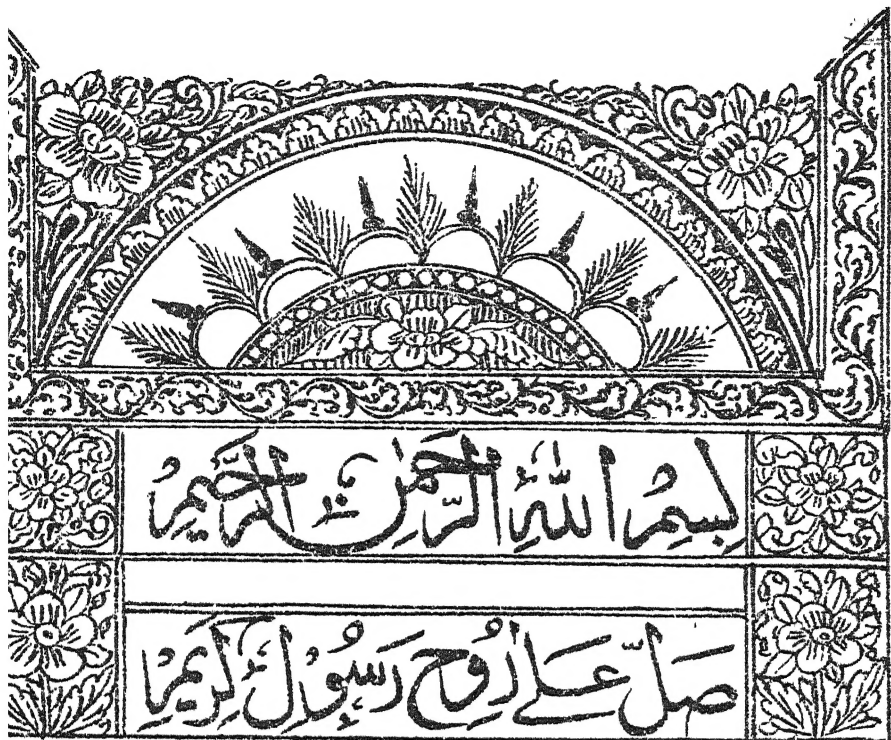 بِسْمِ اللّٰهِ الرَّحْمٰنِ الرَّحِيْمِ
صَلِّ عَلٰى رُوْحِ رَسُوْلٍ كَرِيْمٍ